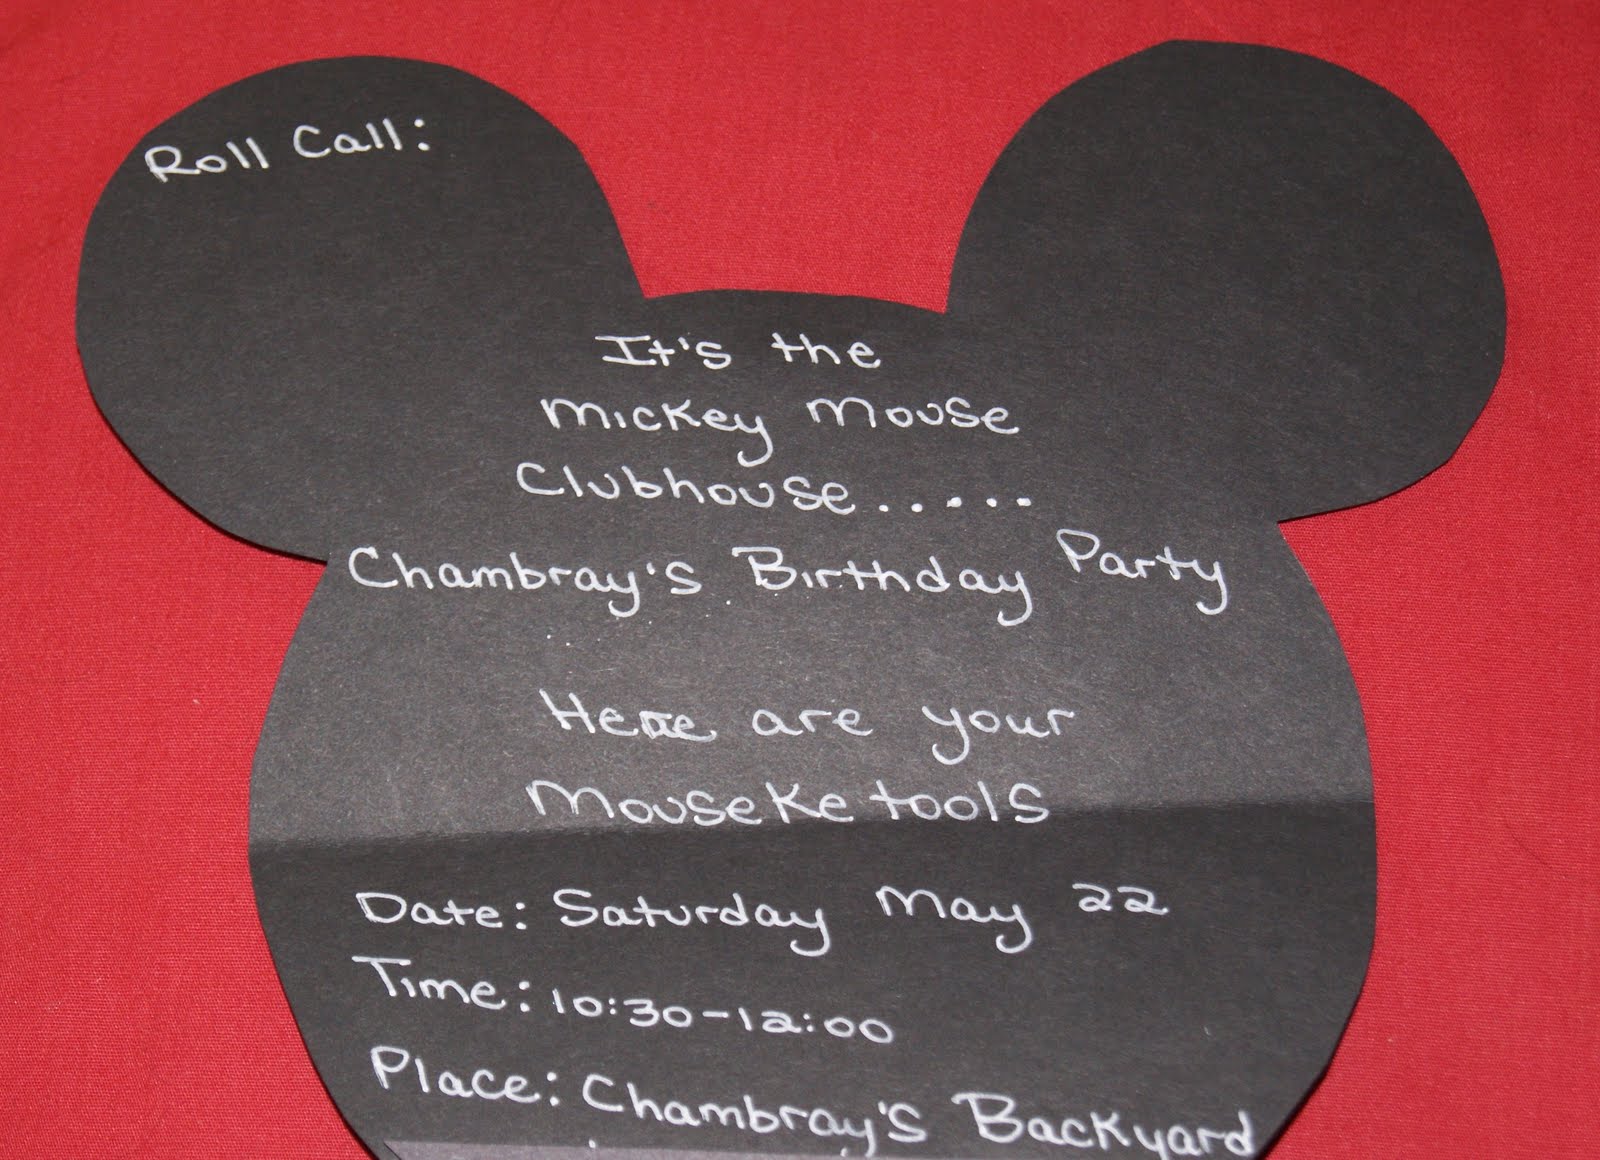 Roll Call:
It's the
Mickey Mouse
Clubhouse.....
Chambray's Birthday Party
Here are your
Mouseketools
Date: Saturday May 22
Time: 10:30-12:00
Place: Chambray's Backyard